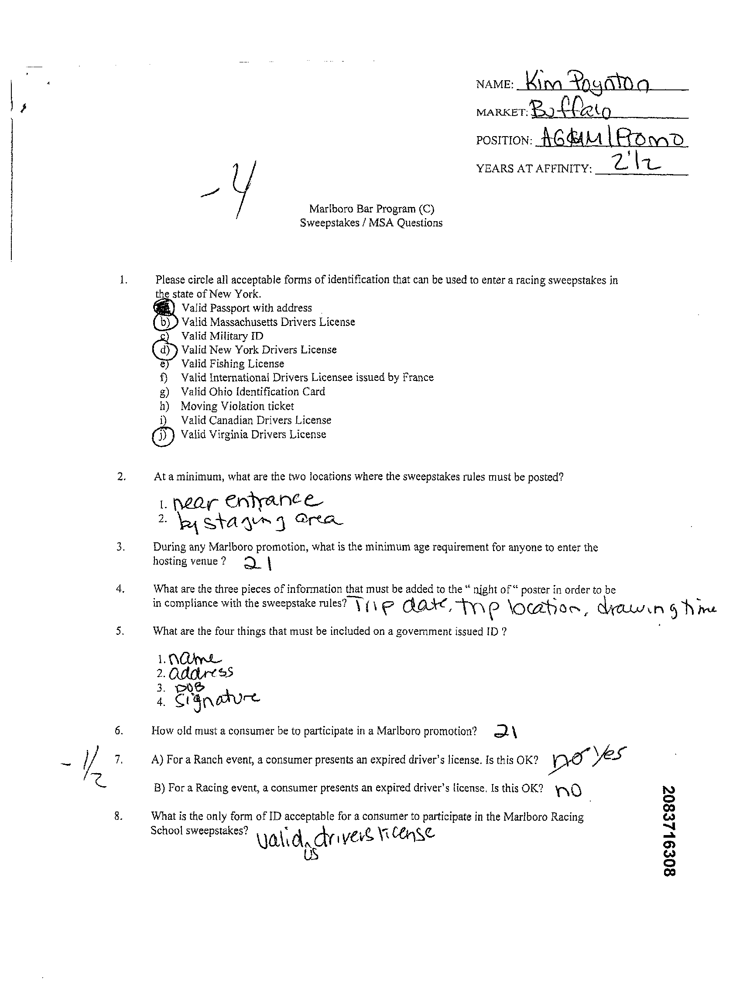 NAME: Kim Poynton
MARKET: Buffalo
POSITION: AGCAM/Promo
YEARS AT AFFINITY: 2 1/2
-4
Marlboro Bar Program (C)
Sweepstakes / MSA Questions
1. Please circle all acceptable forms of identification that can be used to enter a racing sweepstakes in
the state of New York.
Valid Passport with address
b) Valid Massachusetts Drivers License
c) Valid Military ID
d) Valid New York Drivers License
e) Valid Fishing License
f) Valid International Drivers Licensee issued by France
g) Valid Ohio Identification Card
h) Moving Violation ticket
i) Valid Canadian Drivers License
j) Valid Virginia Drivers License
2. At a minimum, what are the two locations where the sweepstakes rules must be posted?
1. near entrance
2. by staging area
3. During any Marlboro promotion, what is the minimum age requirement for anyone to enter the
hosting venue ? 21
4. What are the three pieces of information that must be added to the " night of " poster in order to be
in compliance with the sweepstake rules? Trip date, trip location, drawing time
5. What are the four things that must be included on a government issued ID ?
1. name
2. address
3. DOB
4. signature
6. How old must a consumer be to participate in a Marlboro promotion? 21
- 1/2 7. A) For a Ranch event, a consumer presents an expired driver's license. Is this OK? no yes
B) For a Racing event, a consumer presents an expired driver's license. Is this OK? no
8. What is the only form of ID acceptable for a consumer to participate in the Marlboro Racing
School sweepstakes? valid drivers license
US
2083716308